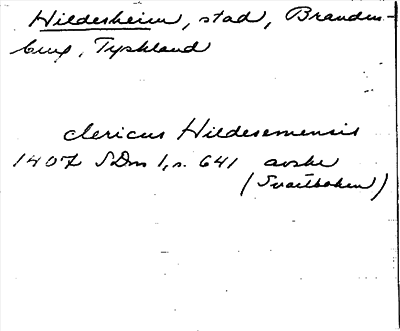 Hildesheim, stad, Branden-
burg, Tyskland
clericus Hildesemensis
1407 SDns 1, s. 641 avskr
(Svartboken)